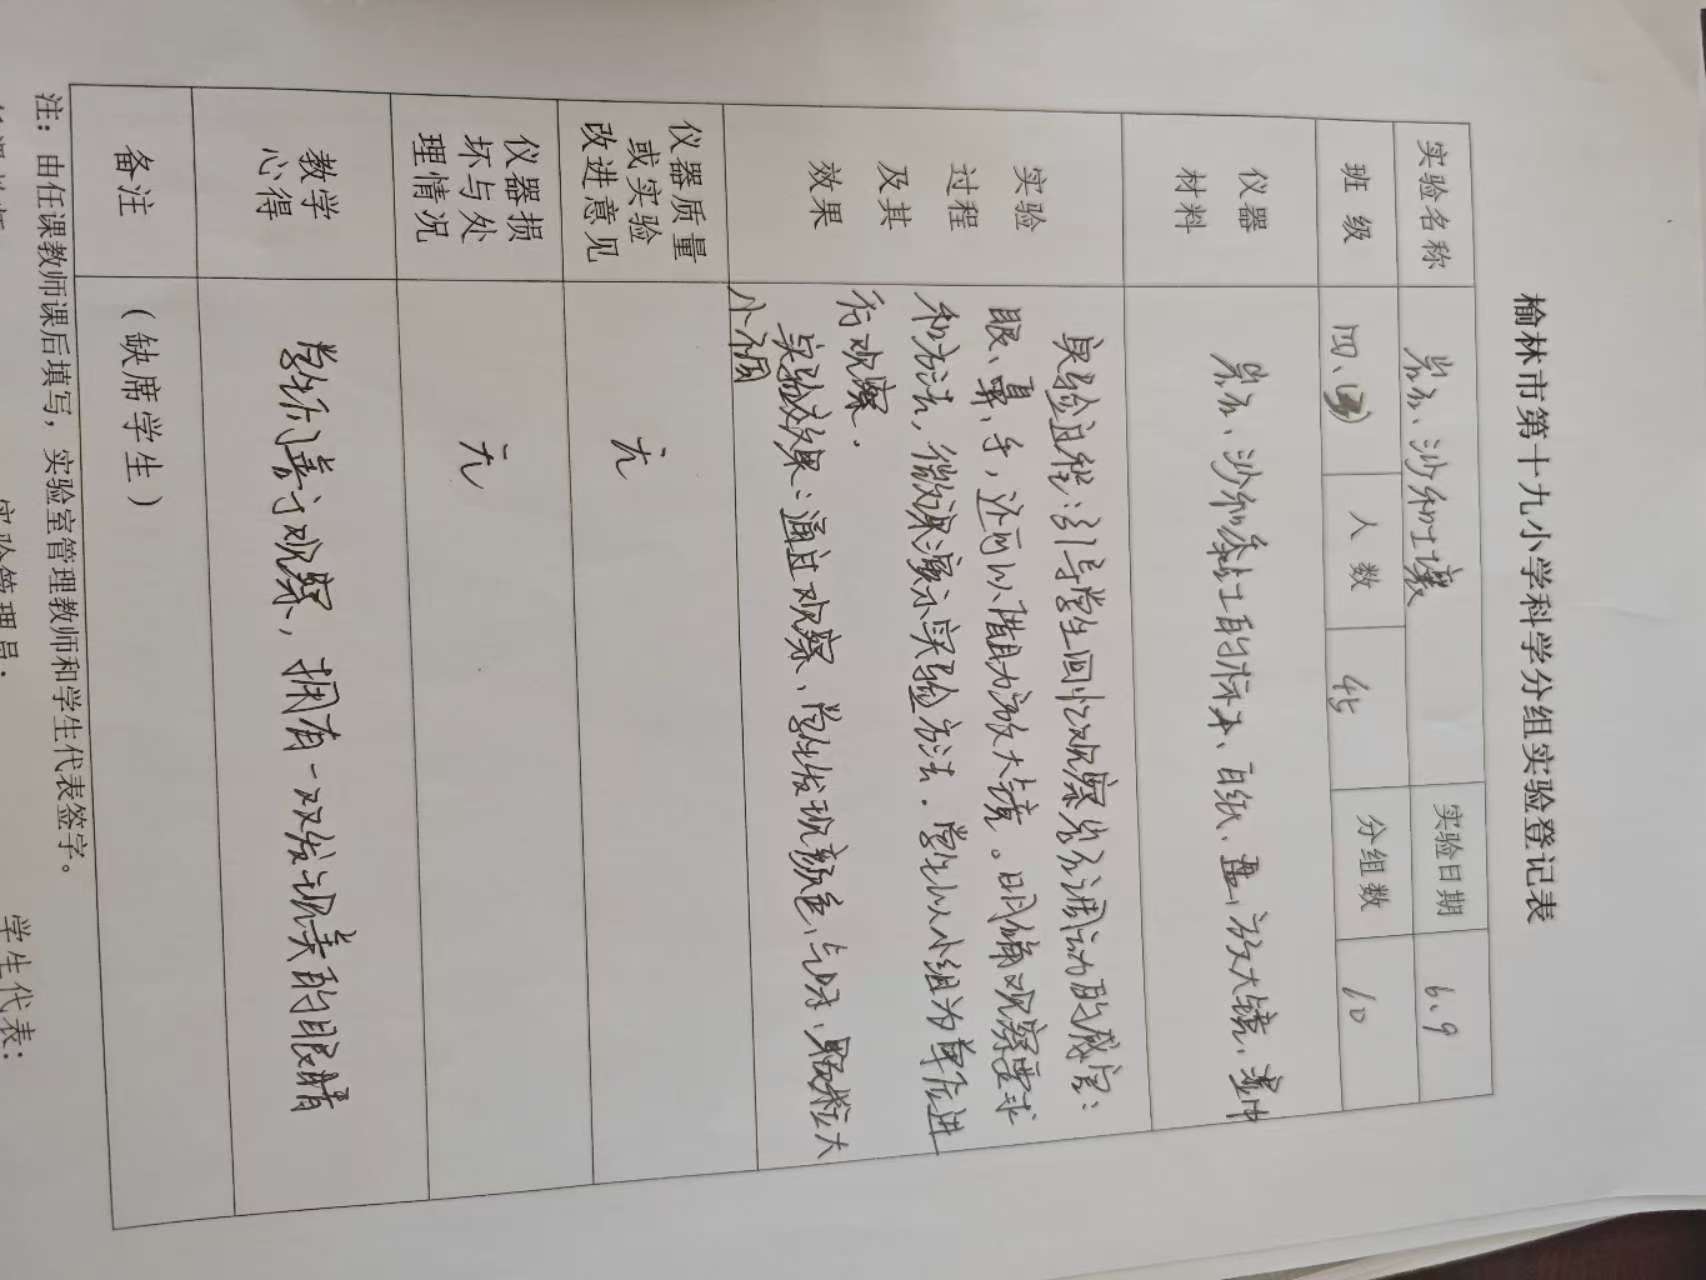 榆林市第十九小学科学分组实验登记表
实验名称 岩石、沙和土壤 实验日期 6.9
班 级 四、 人 数 45 分组数 10
仪器
材料
岩石、沙和黏土的标本、白纸、盘、放大镜、湿巾
实验
过程
及其
效果
实验过程:引导学生回忆观察岩石调动的感官:
眼、鼻、手,还可以借助放大镜。明确观察要求
和方法,微课演示实验方法.学生以小组为单位进
行观察.
实验效果:通过观察、学生发现颜色、气味、颗粒大
小不同
仪器质量
或实验
改进意见
无
仪器损
坏与处
理情况
无
教学
心得
学生善于观察,拥有一双发现美的眼睛
备注
(缺席学生)
注:由任课教师课后填写,实验室管理教师和学生代表签字。
学生代表: